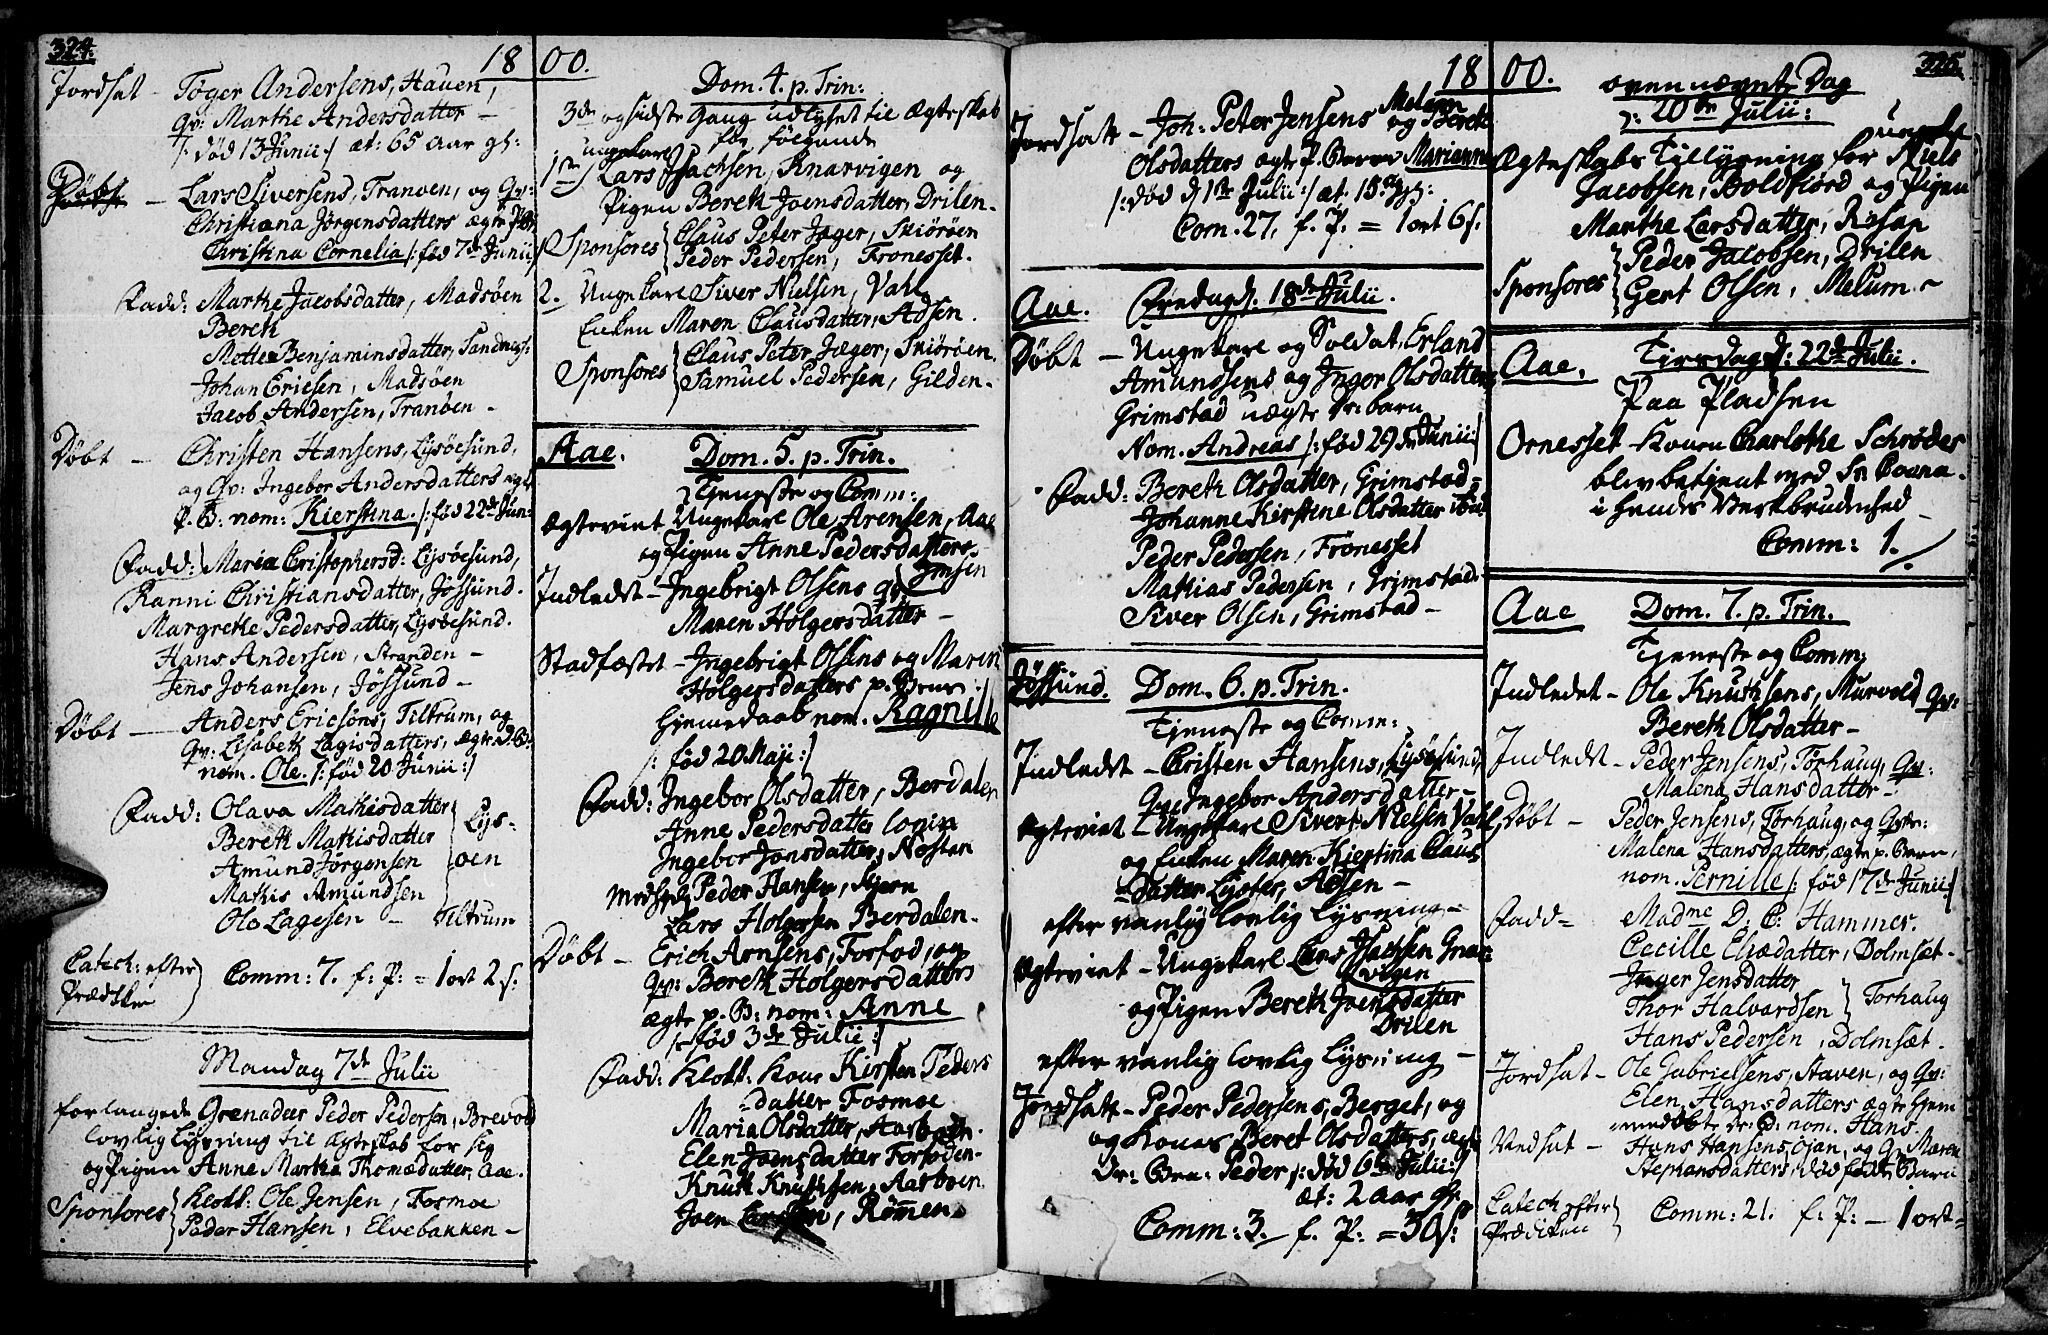 324.
1800.
Jordsat - Töger Andersens, Hauen,
Qv: Marthe Andersdatter -
/: död 13 Junii :/ æt: 65 aar gl:
Döbt - Lars Siversens, Tranöen, og Qv:
Christiana Jörgensdatters ægte P.B:
Christina Cornelia /: föd 7de Junii :/
Fadd: Marthe Jacobsdatter, Madsöen
Bereth
Mette Benjaminsdatter,
Johan Ericsen, Madsöen
Jacob Andersen, Tranöen -
Döbt - Christen Hansens, Lysöesund,
og Qv: Ingebor Andersdatters ægte
P. B: nom: Kierstina. /: föd 22de Jun:
Fadd: Maria Christophersd: Lysöesund,
Ranni Christiansdatter, Jössund.
Margrethe Pedersdatter, Lysöesund.
Hans Andersen, Stranden -
Jens Johansen, Jössund -
Döbt - Anders Ericsöns, Tiltrum, og
Qv: Lisabeth Lagisdatters, ægte D.B:
nom. Ole. /: föd 20 Junii :/
Fadd: Olava Mathisdatter
Bereth Mathisdatter
Amund Jörgensen
Mathis Amundsen
Lys-
öen
Ole Lagesen - Tiltrum
Catech: efter
Prædiken
Comm: 7. f: P: = 1 ort 2 s:
Mandag 7de Julii
forlangede Grenadeer Peder Pedersen, Brevold
lovlig Lysning til ægteskab for sig
og Pigen Anne Martha Thomædatter, Aae.
Sponsores Klokk: Ole Jensen, Fosmoe
Peder Hansen, Elvebakken -
Dom. 4. p. Trin:
3de og sidste Gang udlyset til Ægteskab
for fölgende
1ste) Ungekarl Lars Isachsen, Knarvigen og
Pigen Bereth Joensdatter, Drilen.
Sponsores Claus Peter Jæger, Skiöröen
Peder Pedersen, Fronesset.
2. Ungekarl Siver Nielsen, Vall
Enken Maren Clausdatter, Adsen.
Sponsores Claus Peter Jæger, Skiöröen.
Samuel Pedersen, Gilden.
Aae. Dom. 5. p. Trin.
Tjeneste og Comm:
Ægteviet Ungekarl Ole Arensen, Aae
og Pigen Anne Pedersdatters,
Indledet - Ingebrigt Olsens Qv: Imsen
Maren Holgersdatter -
Stadfæstet - Ingebrigt Olsens og Maren
Holgersdatters p. Barn
hjemedaab nom. Ragnille
/: föd 20 Maji :/
Fadd: Ingebor Olsdatter, Berdalen
Anne Pedersdatter
Ingebor Jonsdatter,
Peder Hansen, Stjern
Lars Holgersen Berdalen.
Döbt - Erich Arnsens, Forfod, og
Qv: Bereth Holgersdatters
ægte p. B: nom: Anne
/: föd 3de Julii :/
Fadd: Klokk: Kone Kirsten Peders
datter Fosmoe
Maria Olsdatter,
Elen Joensdatter Forfoden.
Knuth Knuthsen,
Joen Römen.
1800.
325.
Jordsatt - Joh: Peter Jensens Melum
og Bereth
Olsdatters ægte P. Barn Marianne
/: död d 1ste Julii :/ æt. 15
Com. 27. f. P. = 1 ort 6 s.
Aae. Fredag d. 18de Julii.
Döbt - Ungekarl og Soldat, Erland
Amundsens og Inger Olsdatters
Grimstad uægte Dr: barn
Nom. Andreas /: föd 29 Junii :/
Fadd: Bereth Olsdatter, Grimstad
Johanne Kirstine Olsdatter ibid
Peder Pedersen, Fronesset
Mathias Pedersen, Grimstad.
Siver Olsen, Grimstad -
Jössund. Dom. 6. p. Trin.
Tjeneste og Comm:
Indledet - Cristen Hansens, Lysöesund,
Qv: Ingebor Andersdatter -
Ægteviet - Ungekarl Sivert Nielsen Vall
og Enken Maren Kiertina Claus
datter Adsen -
efter vanlig lovlig lysning -
Ægteviet - Ungekarl Lars Isachsen Gnar-
vigen
og Pigen Bereth Joensdatter
Drilen
efter vanlig lovlig lysning -
Jordsatt - Peder Pedersens, Berget, og
og Konas Beret Olsdatters, ægte
Dr: Brn: Peder /: död 6te Julii :/
æt: 2 aar gl.
Comm: 3. f. P: = 30 s:
ovennævnte Dag
: 20de Julii:
Ægteskabs Tillysning for ungk: Niels
Jacobsen, Boldfiörd og Pigen
Marthe Larsdatter,
Sponsores Peder Jacobsen, Drilen
Gert Olsen, Melum -
Aae. Tirsdag d: 22de Julii.
Paa Pladsen
Ornesset - Konen Charlothe Schröder
blev betjent med
i hendes
Comm: 1.
Aae Dom. 7. p. Trin.
Tjeneste og Comm:
Indledet - Ole Knuthsens, Murvold Qv:
Bereth Olsdatter -
Indledet - Peder Jensens, Torhaug, Qv:
Malena Hansdatter -
Döbt - Peder Jensens, Torhaug, og Qv:
Malena Hansdatters, ægte p. Barn,
nom. Pernille /: föd 17de Junii :/
Fadd - Madme D. C: Hammer.
Cecille Eliædatter, Dolmsæt -
Inger Jensdatter
Thor Halvardsen
Torhaug
Hans Pedersen, Dolmsæt.
Jordsat - Ole Gabrielsens, Haven, og Qv:
Elen Hansdatters ægte hjem
medöbte Dr: B: nom. Hans.
Hans Hansens, og Qv: Maren
Stephansdatters, död födt Barn
Catech efter
Prædiken
Comm: 21. f. P: - 1 ort -